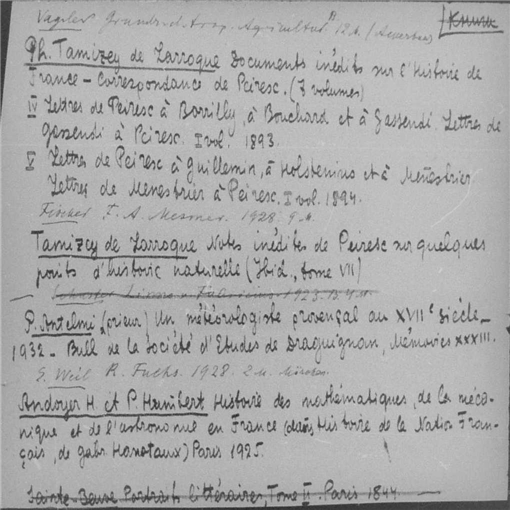 Vageler Grundriss d. trop. Agricultur 12 M.
Ph. Tamizey de Larroque Documents inédits sur l'Histoire de
France - Correspondance de Peiresc. (7 volumes)
IV Lettres de Peiresc à Borrilly, à Bouchard et à Gassendi. Lettres de
Gassendi à Peiresc. I vol. 1893.
V Lettres de Peiresc à Guillemin, à Holstenius et à Menestrier
Lettres de Menestrier à Peiresc. I vol. 1894.
Fischer F. A. Mesmer. 1928. 9 M.
Tamizey de Larroque Notes inédites de Peiresc sur quelques
points d'histoire naturelle (Ibid., tome VII)
1923.
P. Antelmi (prieur) Un météorologiste provençal au XVIIe siècle_
1932 - Bull de la Société d'Etudes de Draguignan, Mémoires XXXIII.
E. Weil R. Fuchs. 1928. 2 M.
Andoyer H. et P. Humbert Histoire des mathématiques, de la méca-
nique et de l'astronomie en France (dans Histoire de la Nation Fran-
çais, de gabr. Hanotaux) Paris 1925.
Sainte-Beuve Portraits littéraires, Tome II. Paris 1844.